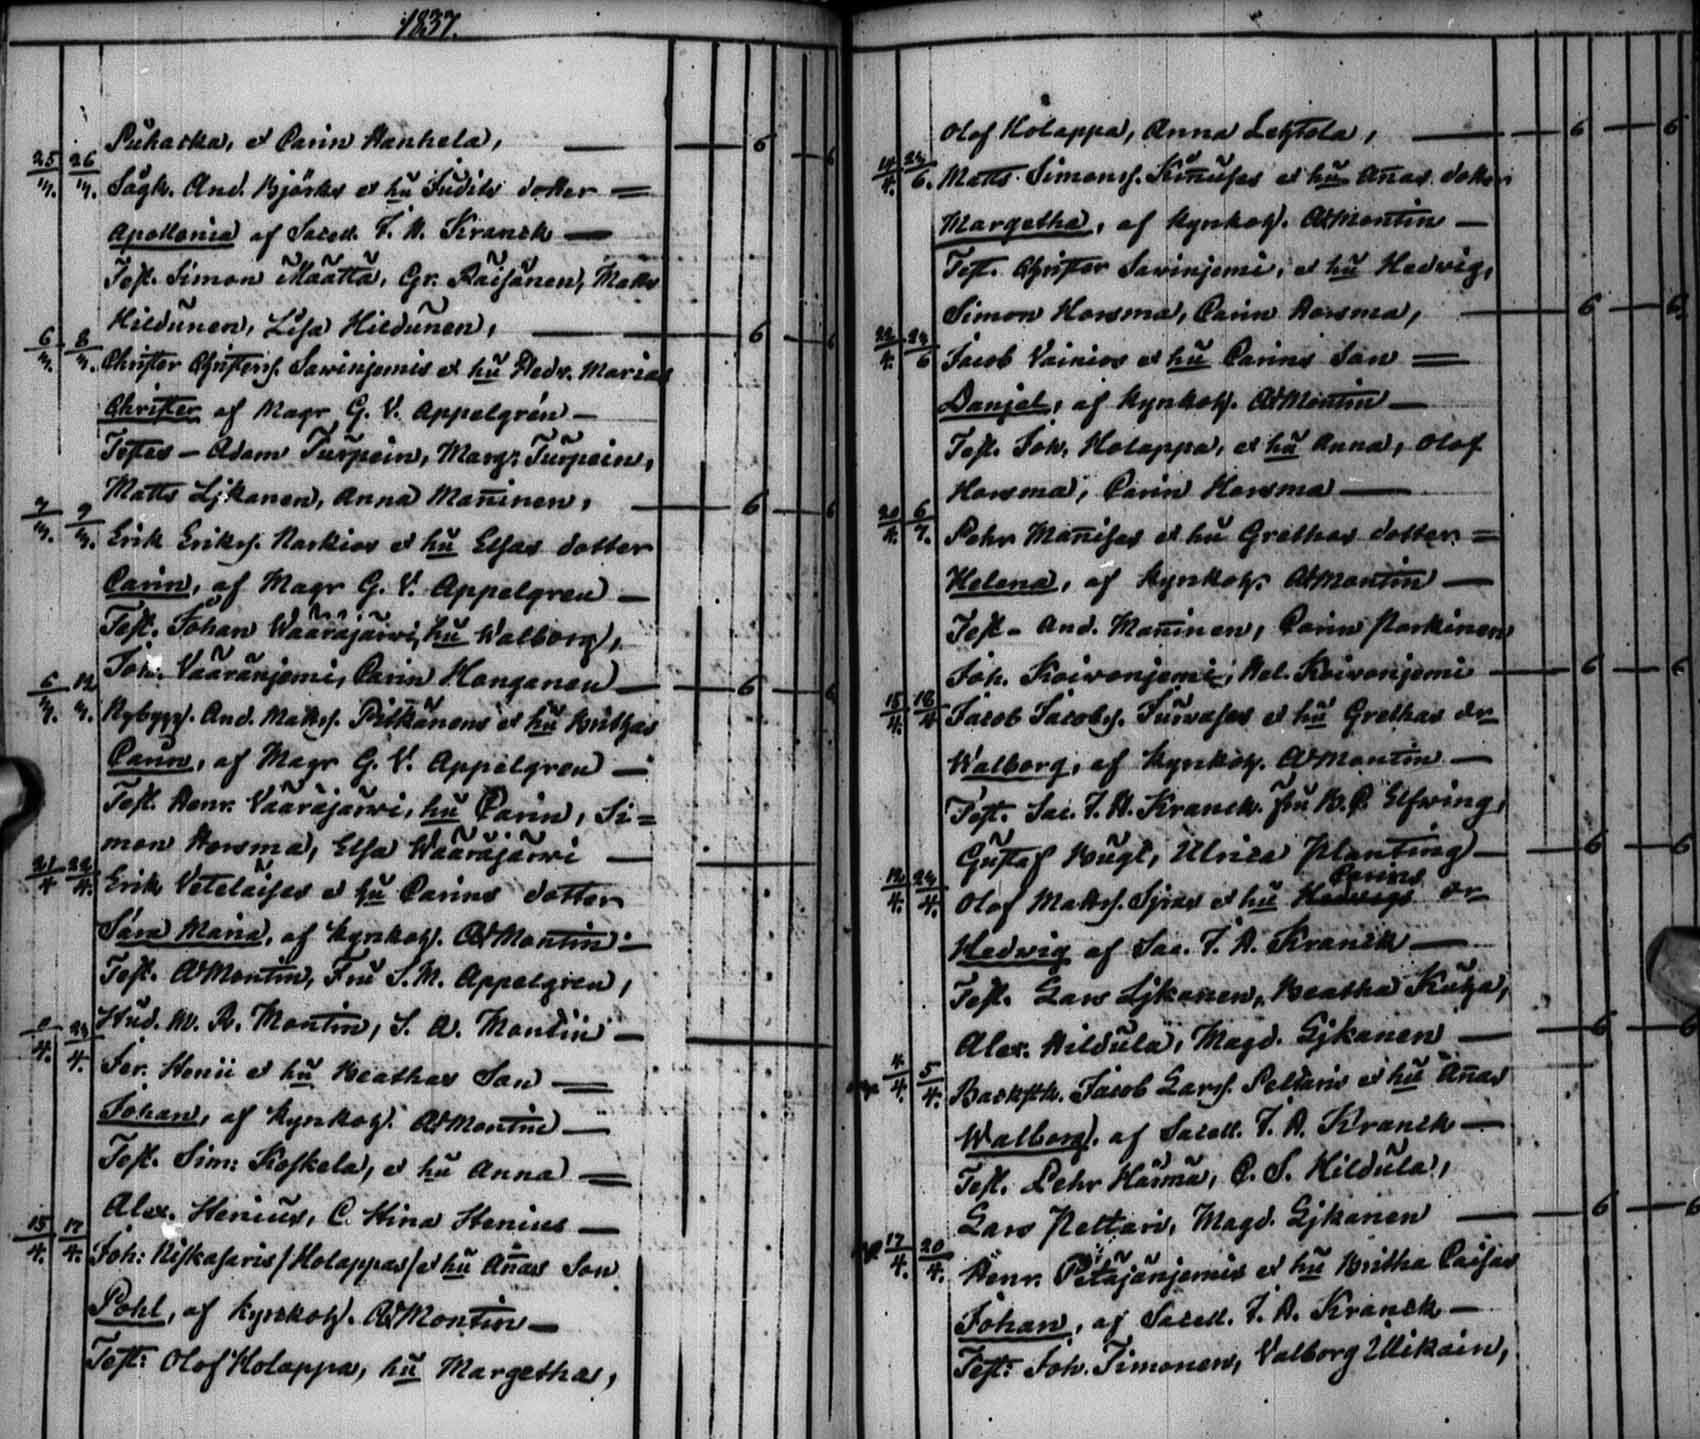 1837.
Puhacka, et Carin Hanhela, — 6 — 6
25/m. 26/m. Sågk. And. Björks et hu Judits dotter =
Apollonia af Sacell. J. H. Kranck —
Test. Simon Määttä, Gr. Räisänen, Matts
Hildunen, Lisa Hildunen, — 6 — 6
6/m. 8/m. Christer Christers. Sarvinjemis et hu Hedv. Marias
Christer af Magr G. V. Appelgrén —
Testes — Adam Turpein, Margr. Turpein,
Matts Ljkanen, Anna Mañinen, — 6 — 6
7/m. 9/m. Erik Eriks. Karkios et hu Elsas dotter
Carin, af Magr G. V. Appelgren —
Test. Johan Wääräjärwi, hu Walborg,
Joh. Vääränjemi, Carin Honganen — 6 — 6
6/m. 12/m. Nybygg. And. Matts. Pitkänens et hu Brithas
Carin, af Magr G. V. Appelgren —
Test. Henr. Vääräjärvi, hu Carin, Si=
mon Horsma, Elsa Wääräjärwi —
21/4 22/4. Erik Vetelaises et hu Carins dotter
Sara Maria, af Kyrkoh. A Montin —
Test. A Montin, Fru S. M. Appelgren,
Stud. M. R. Montin, S. A. Montin —
24/4. Ser. Stenii et hu Beathas Son =
Johan, af Kyrkoh. A Montin —
Test. Sim: Koskela, et hu Anna =
Alex. Stenius, C. Stina Stenius —
15/4. 17/4. Joh: Niskasaris /Holappas/ et hu Añas Son
Pohl, af Kyrkoh. A Montin —
Test: Olof Holappa, hu Margethas,
Olof Holappa, Anna Lehtola, — 6 — 6
24/6. Matts Simons. et hu Añas dotter
Margetha, af Kyrkoh. A Montin —
Test. Christer Sarvinjemi, et hu Hedvig,
Simon Horsma, Carin Horsma, — 6 — 6
24/6 Jacob Vainios et hu Carins Son =
Danjel, af Kyrkoh. A Montin —
Test. Joh. Holappa, et hu Anna, Olof
Horsma, Carin Horsma —
20/4. 6/7. Pehr Mañises et hu Grethas dotter =
Helena, af Kyrkoh. A Montin —
Test — And. Mañinen, Carin Karkinen
Joh. Koivonjemi, Hel. Koivonjemi — 6 — 6
15/4. 16/4 Jacob Jacobs. Turvases et hu Grethas dr
Walborg, af Kyrkoh. A Montin —
Test. Sac. J. H. Kranck. fru B. C. Elfving,
Gustaf Bügt, Ulrica Planting — 6 — 6
12/4. 24/4. Olof Matts. et hu Hedvigs Carins dr
Hedvig af Sac. J. H. Kranck —
Test. Lars Ljkanen, Beatha
Alex. Hildula, Magd. Ljkanen — 6 — 6
4/4. 5/4. Backstk. Jacob Lars. Peltaris et hu Añas
Walborg. af Sacell. J. H. Kranck —
Test. Pehr Härmä, C. S. Hildula,
Lars Peltari, Magd. Ljkanen — 6 — 6
17/4. 20/4. Henr. Petäjänjemis et hu Britha Caisas
Johan, af Sacell. J. H. Kranck —
Test: Joh. Timonen, Valborg Ulikain,